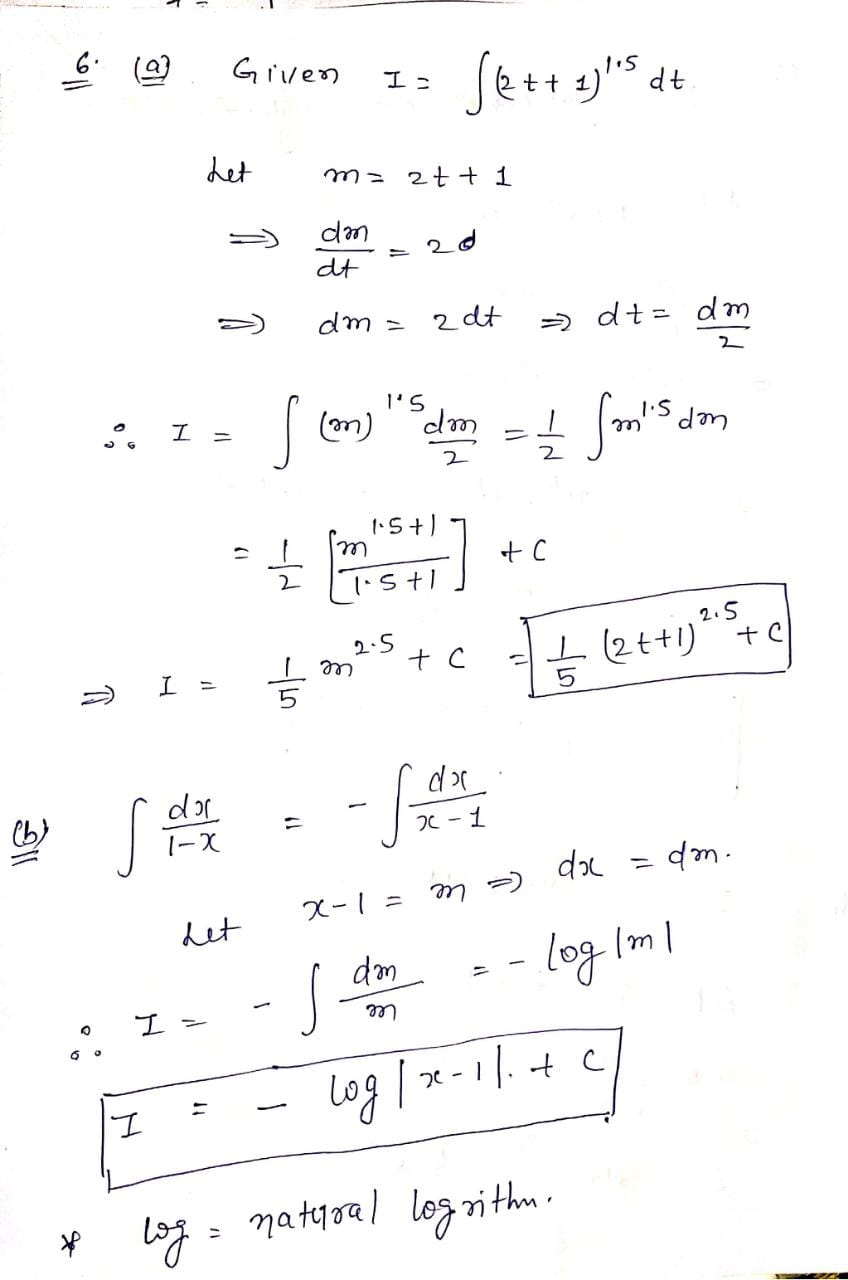 6. (a) Given I = ∫(2t+1)^1.5 dt
Let m = 2t + 1
⇒ dm/dt = 2
⇒ dm = 2dt ⇒ dt = dm/2
∴ I = ∫(m)^1.5 dm/2 = 1/2 ∫m^1.5 dm
= 1/2 [m^(1.5+1)/(1.5+1)] + C
⇒ I = 1/5 m^2.5 + C = 1/5 (2t+1)^2.5 + C
(b) ∫ dx/(1-x) = - ∫ dx/(x-1)
Let x-1 = m ⇒ dx = dm.
∴ I = - ∫ dm/m = - log |m|
I = - log |x-1|. + C
* log = natural logrithm.